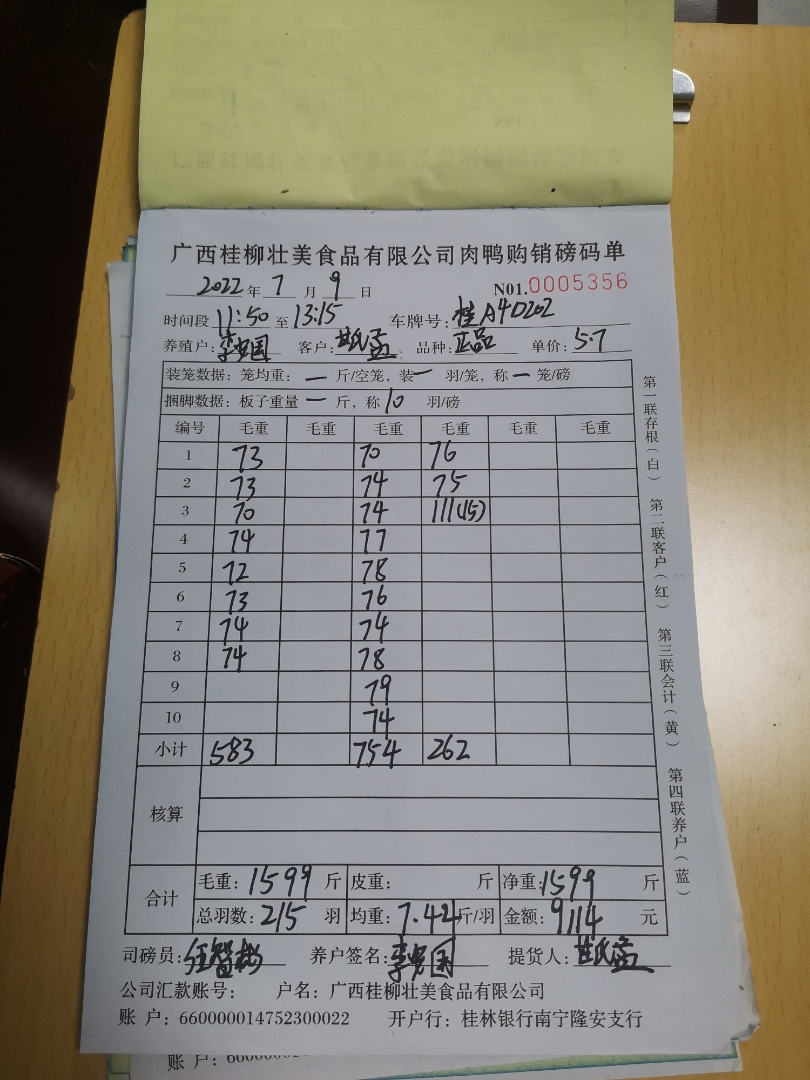 广西桂柳壮美食品有限公司肉鸭购销磅码单
2022 年 7 月 9 日 N01.0005356
时间段 11:50 至 13:15 车牌号: 桂A4D202
养殖户: 客户: 品种: 正品 单价: 5.7
装笼数据: 笼均重: — 斤/空笼, 装 — 羽/笼, 称 — 笼/磅
捆脚数据: 板子重量 — 斤, 称 10 羽/磅
编号 毛重 毛重 毛重 毛重 毛重 毛重
1 73 70 76
2 73 74 75
3 70 74 111(15)
4 74 77
5 72 78
6 73 76
7 74 74
8 74 78
9 79
10 74
小计 583 754 262
核算
合计 毛重: 1599 斤 皮重: 斤 净重: 1599 斤
总羽数: 215 羽 均重: 7.44 斤/羽 金额: 9114 元
司磅员: 养户签名: 提货人:
公司汇款账号: 户名: 广西桂柳壮美食品有限公司
账 户: 660000014752300022 开户行: 桂林银行南宁隆安支行
账 户:
第一联存根(白) 第二联客户(红) 第三联会计(黄) 第四联养户(蓝)